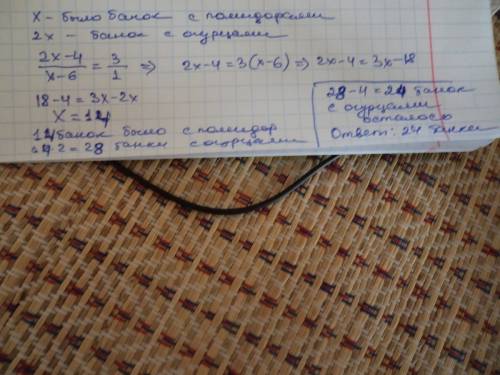 х - было банок с помидорами
2х - банок с огурцами
2х-4/х-6 = 3/1 ⇒ 2х-4=3(х-6) ⇒ 2х-4=3х-18
18-4=3х-2х
х=14
14 банок было с помидор
14·2=28 банки с огурцами
28-4=24 банок
с огурцами
осталось
Ответ: 24 банки